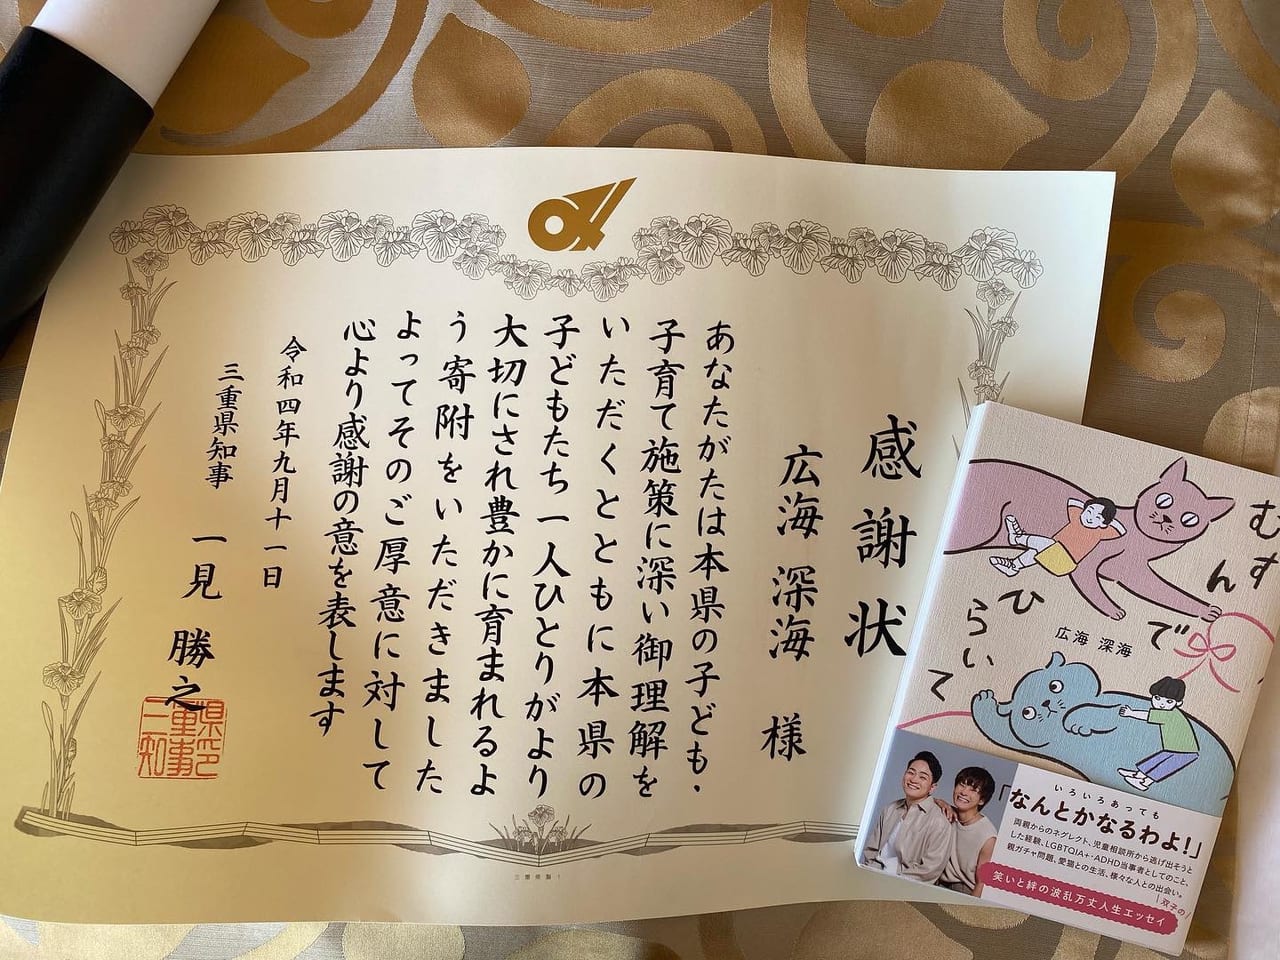 感謝状
広海 深海 様
あなたがたは本県の子ども・
子育て施策に深い御理解を
いただくとともに本県の
子どもたち一人ひとりがより
大切にされ豊かに育まれるよ
う寄附をいただきました
よってそのご厚意に対して
心より感謝の意を表します
令和四年九月十一日
三重県知事 一見 勝之
三重県知事之印
むすんでひらいて
広海 深海
いろいろあっても
「なんとかなるわよ!」
両親からのネグレクト、児童相談所から逃げ出そうと
した経験、LGBTQIA+・ADHD当事者としてのこと、
親ガチャ問題、愛猫との生活、様々な人との出会い。
双子の
笑いと絆の波乱万丈人生エッセイ